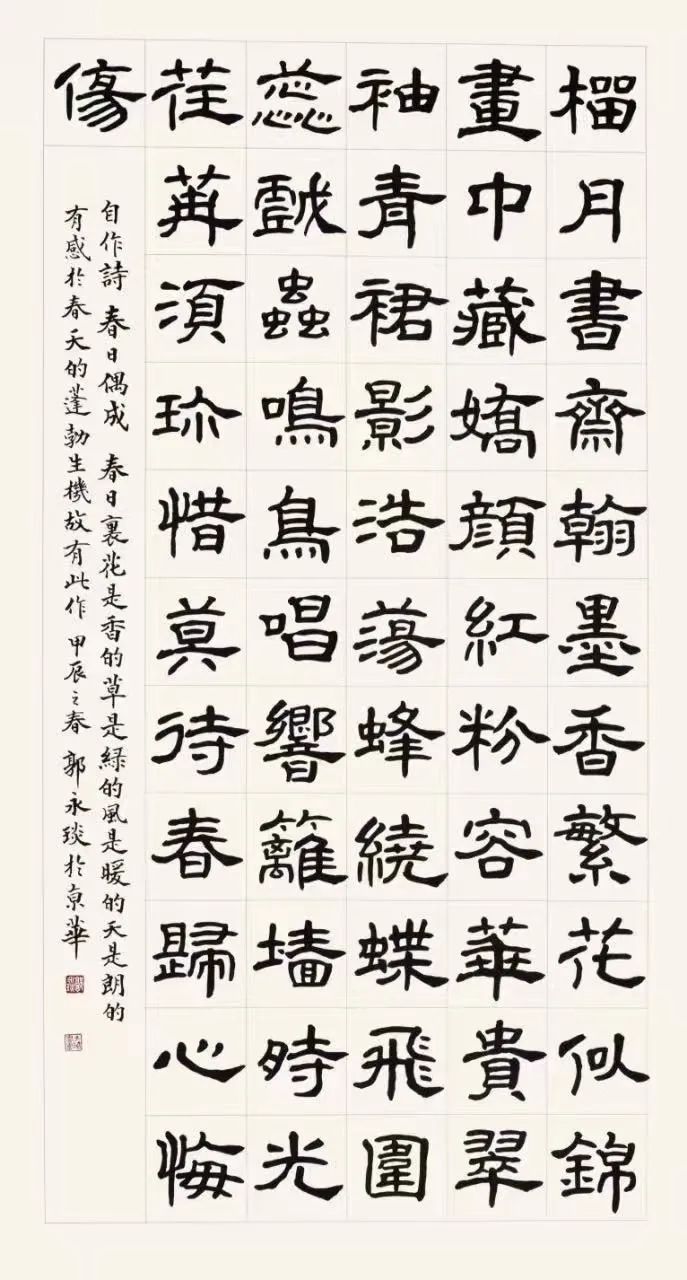 榴月書齋翰墨香繁花似錦
畫中藏嬌顔紅粉容華貴翠
袖青裙影浩蕩蜂繞蝶飛圍
蕊戲蟲鳴鳥唱響籬墻時光
荏苒須珎惜莫待春歸心悔
傷
自作詩 春日偶成 春日裏花是香的草是緑的風是暖的天是朗的
有感於春天的蓬勃生機故有此作 甲辰之春 郭永琰於京華